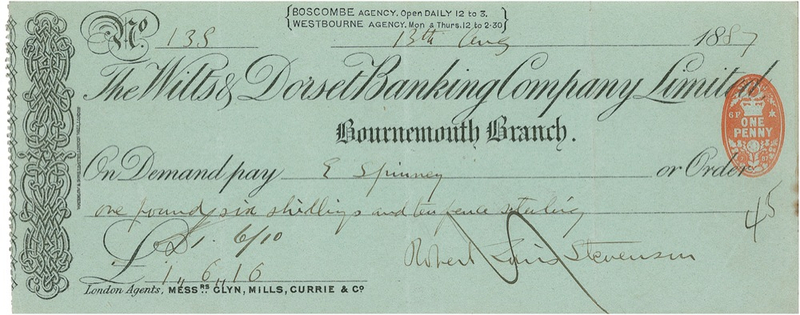 BOSCOMBE AGENCY, Open DAILY 12 to 3.
WESTBOURNE AGENCY. Mon & Thurs. 12 to 2·30
No. 138 13th Aug 1887
The Wilts & Dorset Banking Company Limited
6P ONE PENNY
Bournemouth Branch.
On Demand pay E Spinney or Order
one pound six shillings and ten pence sterling
45
£1. 6/10
£ 1,, 6,, 16
Robert Louis Stevenson
London Agents, MESSRS. GLYN, MILLS, CURRIE & Co